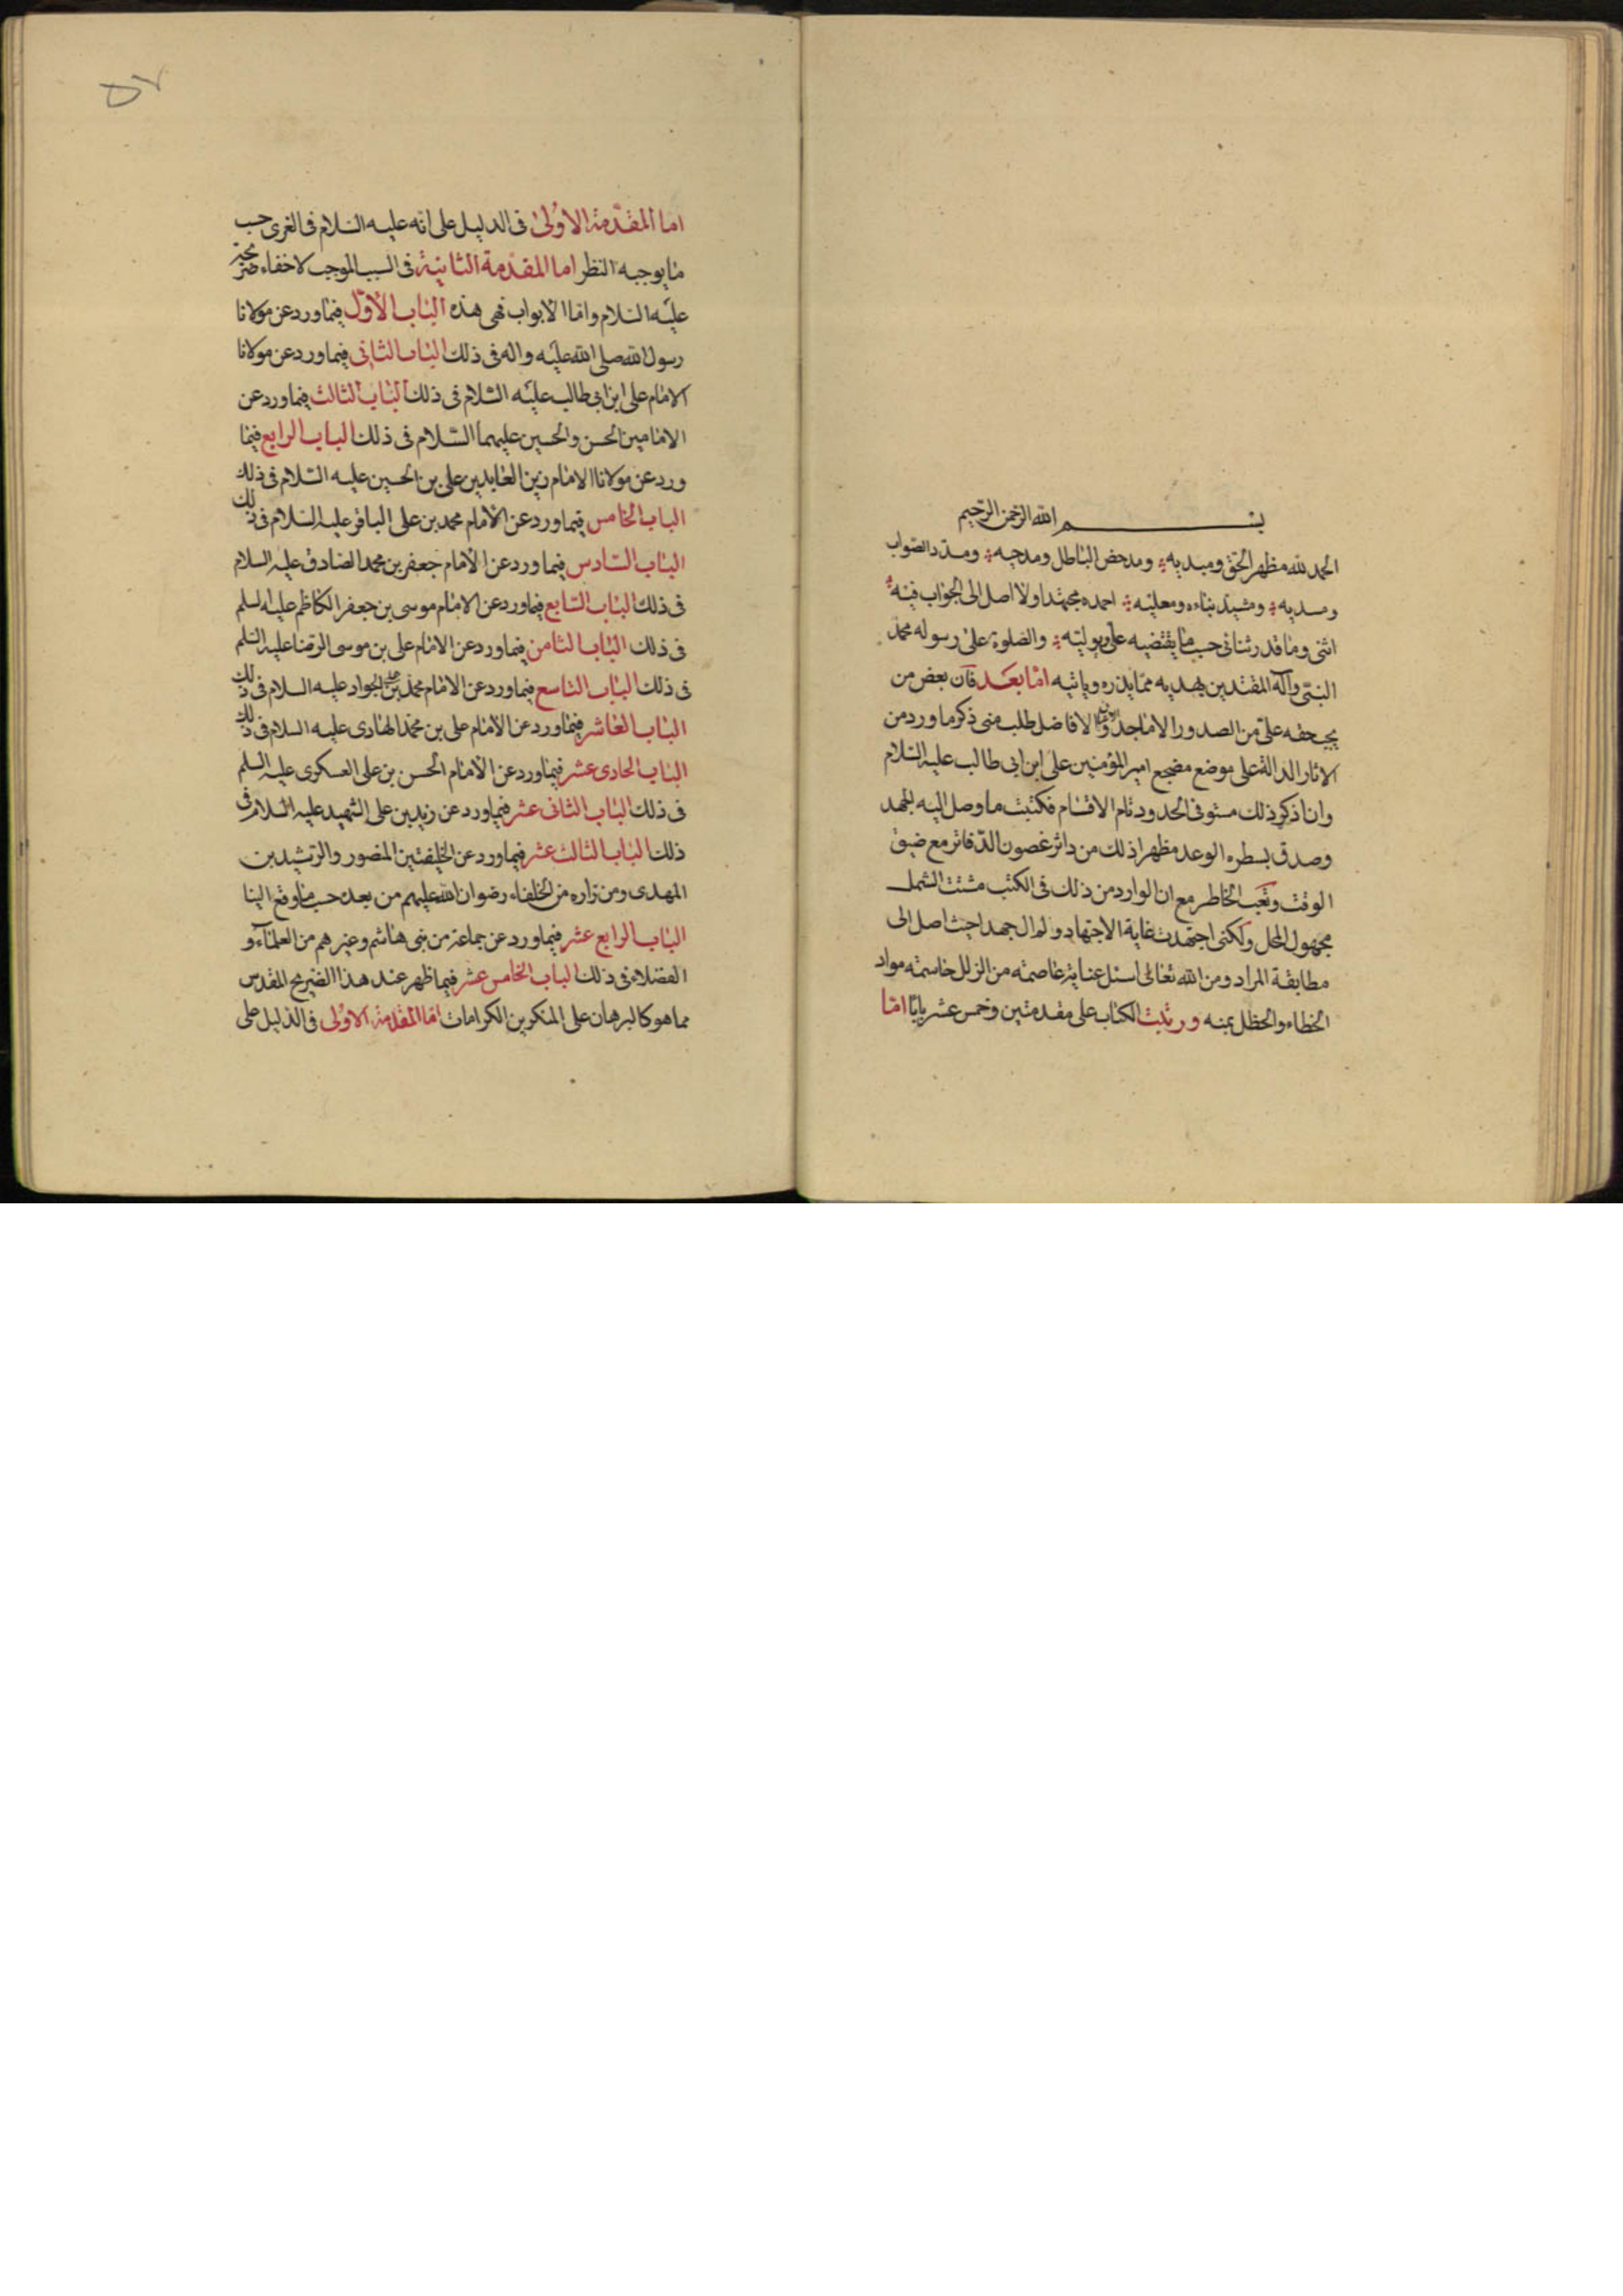 بسم الله الرحمن الرحيم
الحمد لله مظهر الحق ومبديه ومدحض الباطل ومدجيه ومسدد الصواب
ومسديه ومشيد بناءه ومعليه احمده مجتهدا ولا اصل الى الجواب فيه
اثنى وما قدر ثنائى حسب ما يقتضيه على ويوليه والصلوة على رسوله محمد
النبى وآله المقتدين بهديه مما يذره وياتيه اما بعد فان بعض من
يجب حقه على من الصدور الاماجد الافاضل طلب منى ذكر ما ورد من
الاثار الدالة على موضع مضجع امير المؤمنين على ابن ابى طالب عليه السلام
وان اذكر ذلك مستوفى الحدود تام الاقسام فكتبت ما وصل اليه الجهد
وصدق بسطره الوعد مظهرا ذلك من داثر غصون الدفاتر مع ضيق
الوقت وتعب الخاطر مع ان الوارد من ذلك فى الكتب مشتت الشمل
مجهول المحل ولكنى اجتهدت غاية الاجتهاد ولم ال جهدا حيث اصل الى
مطابقة المراد ومن الله تعالى اسئل عناية عاصمته من الزلل حاسمته مواد
الخطاء والخطل بمنه ورتبت الكتاب على مقدمتين وخمس عشر بابا اما
٥٧
اما المقدمة الاولى فى الدليل على انه عليه السلام فى الغرى حسب
ما يوجبه النظر اما المقدمة الثانية فى السبب الموجب لاخفاء ضريحه
عليه السلام واما الابواب فهى هذه الباب الاول فيما ورد عن مولانا
رسول الله صلى الله عليه واله فى ذلك الباب الثانى فيما ورد عن مولانا
الامام على ابن ابى طالب عليه السلام فى ذلك الباب الثالث فيما ورد عن
الامامين الحسن والحسين عليهما السلام فى ذلك الباب الرابع فيما
ورد عن مولانا الامام زين العابدين على بن الحسين عليه السلام فى ذلك
الباب الخامس فيما ورد عن الامام محمد بن على الباقر عليه السلام فى ذلك
الباب السادس فيما ورد عن الامام جعفر بن محمد الصادق عليه السلام
فى ذلك الباب السابع فيما ورد عن الامام موسى بن جعفر الكاظم عليه السلم
فى ذلك الباب الثامن فيما ورد عن الامام على بن موسى الرضا عليه السلم
فى ذلك الباب التاسع فيما ورد عن الامام محمد بن على الجواد عليه السلام فى ذلك
الباب العاشر فيما ورد عن الامام على بن محمد الهادى عليه السلام فى ذلك
الباب الحادى عشر فيما ورد عن الامام الحسن بن على العسكرى عليه السلم
فى ذلك الباب الثانى عشر فيما ورد عن زيد بن على الشهيد عليه السلام فى
ذلك الباب الثالث عشر فيما ورد عن الخليفتين المنصور والرشيد بن
المهدى ومن زاره من الخلفاء رضوان الله عليهم من بعده حسب ما وقع الينا
الباب الرابع عشر فيما ورد عن جماعة من بنى هاشم وغيرهم من العلماء و
الفضلاء فى ذلك الباب الخامس عشر فيما ظهر عند هذا الضريح المقدس
مما هو كالبرهان على المنكرين الكرامات اما المقدمة الاولى فى الدليل على